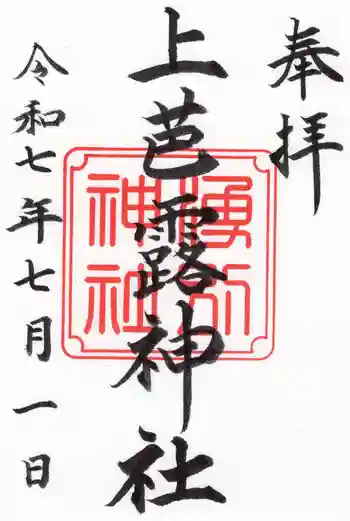 奉拝
上芭露神社
湧別神社
令和七年七月一日